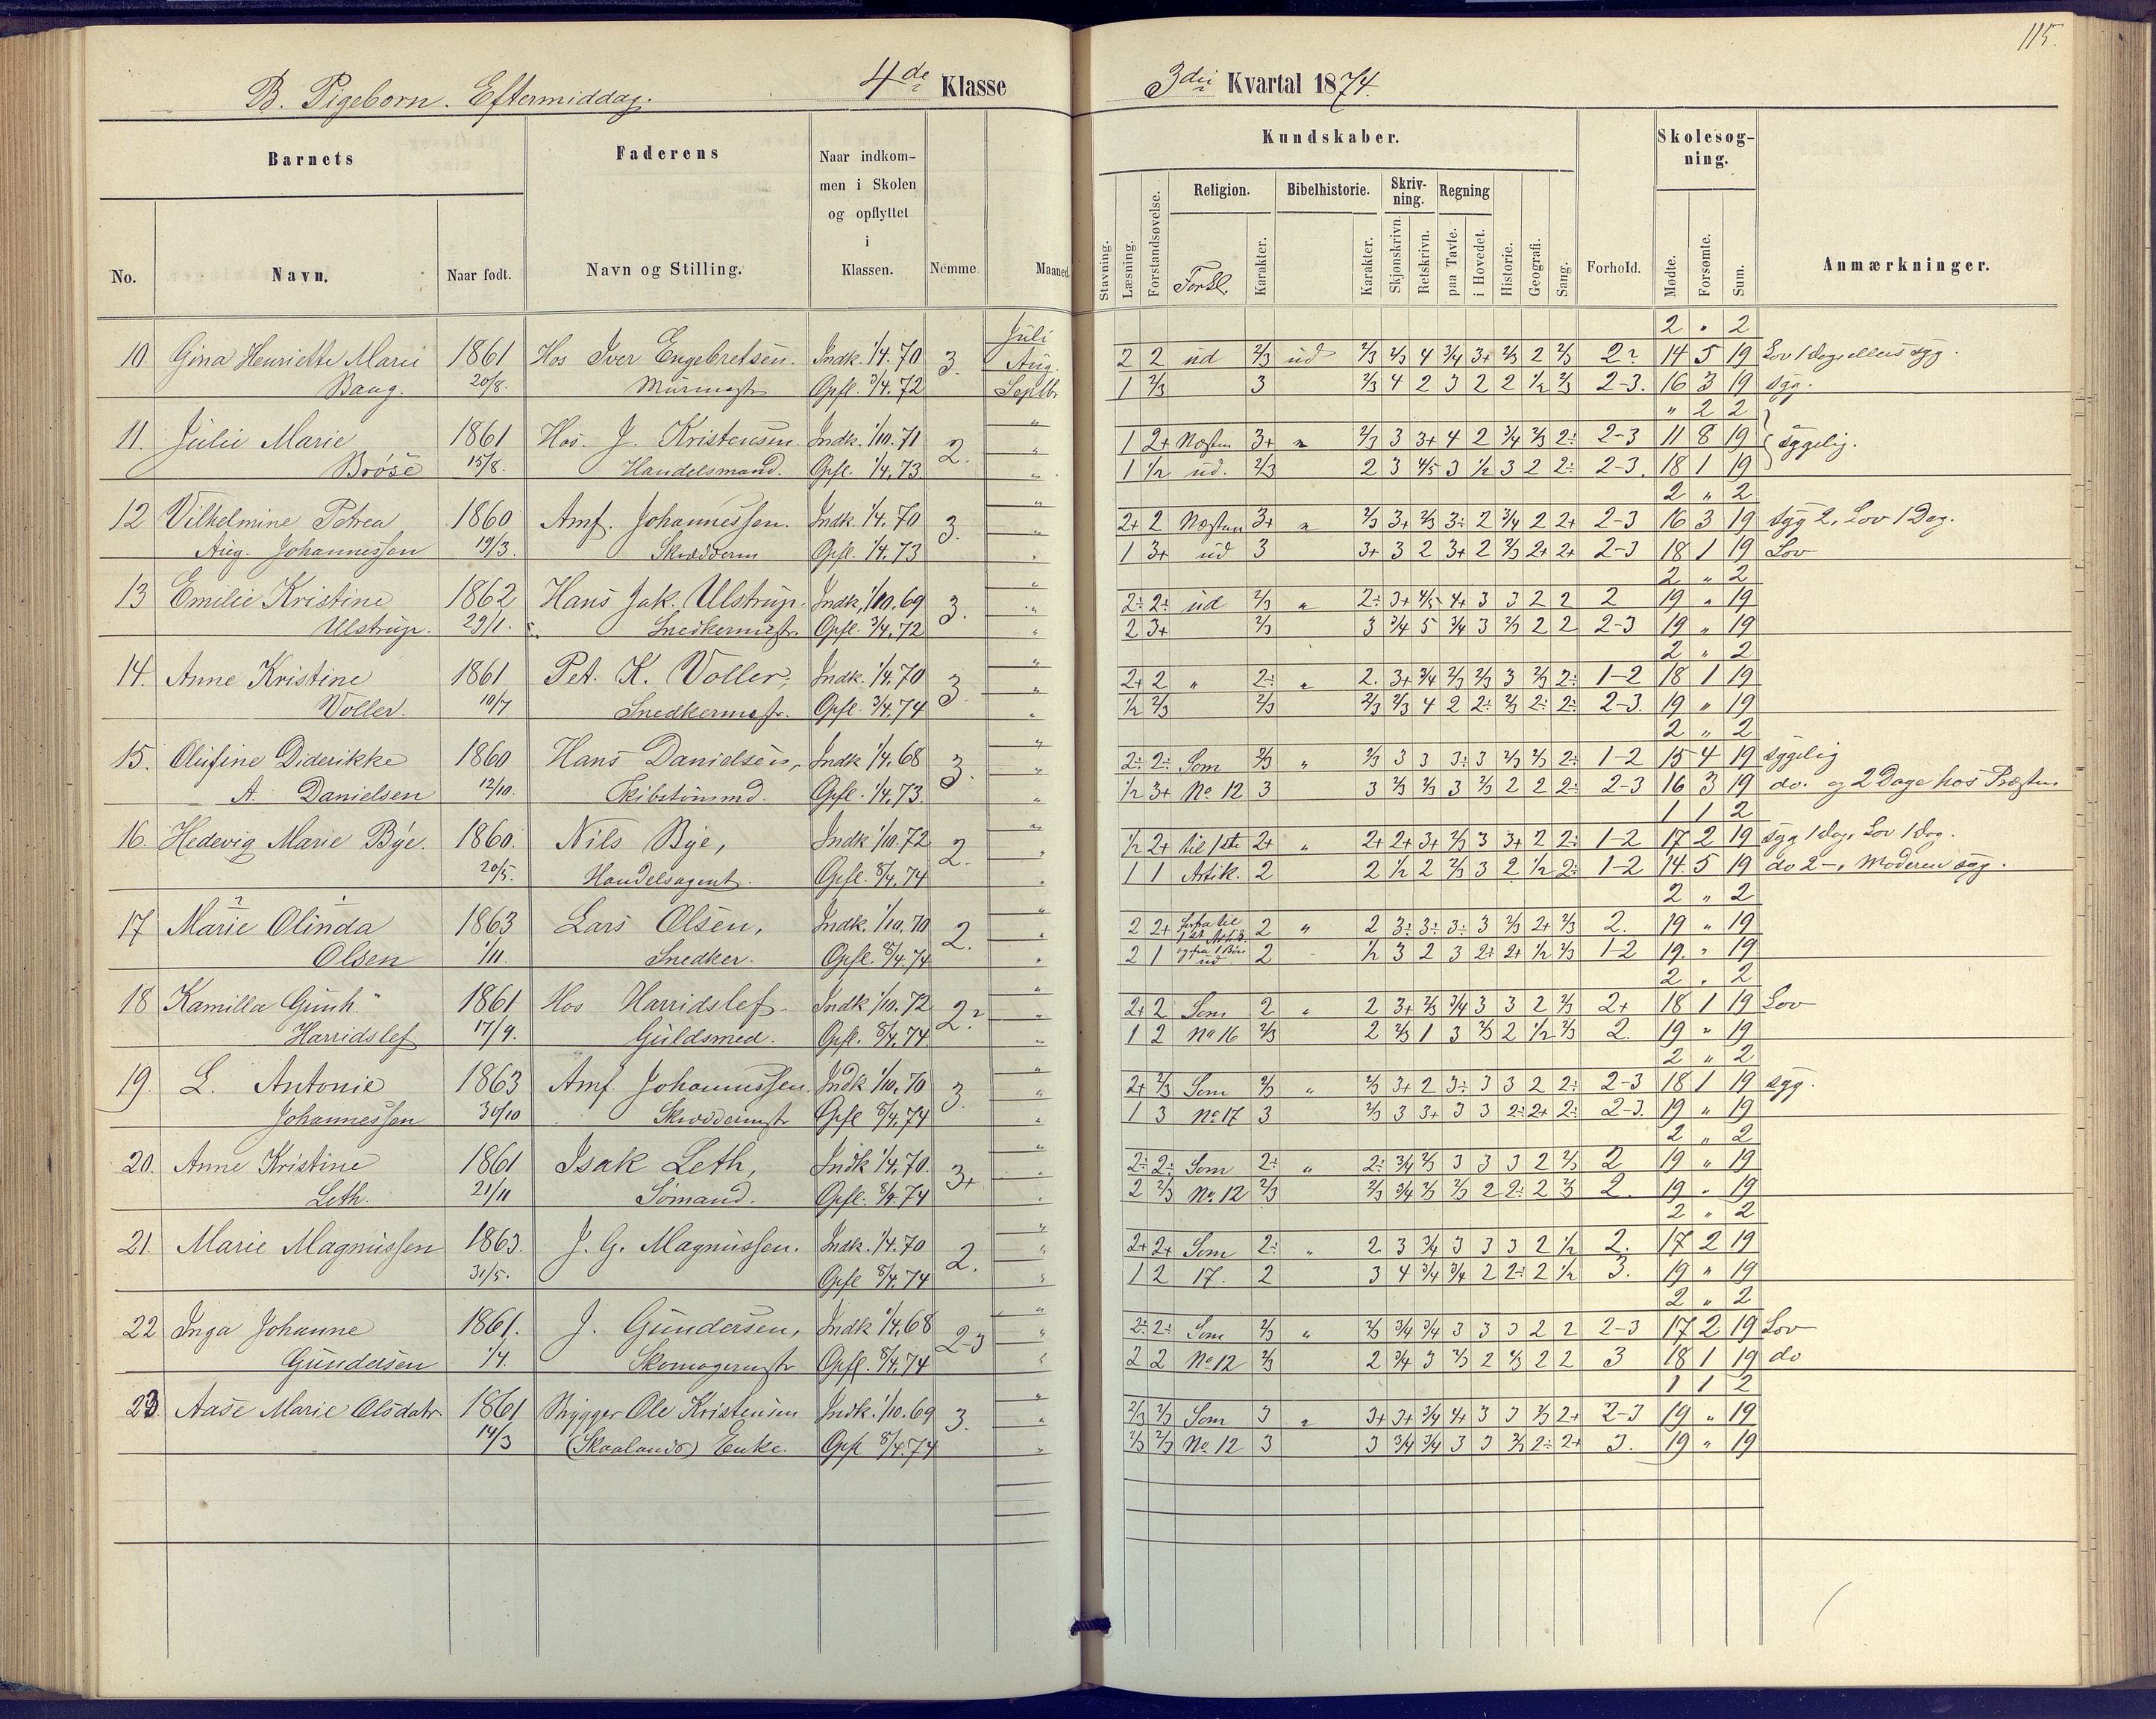 115.
B. Pigeborn. Eftermiddag. 4de Klasse
3die Kvartal 1874.
Barnets
Faderens
Naar indkommen i Skolen og opflyttet i Klassen.
Kundskaber.
Skolesøgning.
No. Navn. Naar født. Navn og Stilling. Nemme. Maaned.
Stavning. Læsning. Forstandsøvelse. Religion. Forkl. Karakter. Bibelhistorie. Karakter. Skrivning. Skjønskrivn. Retskrivn. Regning paa Tavle. i Hovedet. Historie. Geografi. Sang. Forhold. Mødte. Forsømte. Sum. Anmærkninger.
Juli 2 " 2
10. Gina Henriette Marie 1861 Hos Iver Engebretsen. Indk. 1/4. 70 3. Aug. 2 2 ud 2/3 ud 2/3 2/3 4 3/4 3+ 2/3 2 2/3 2? 14 5 19 Lov 1 Dag, ellers syg.
Baag. 20/8. Murmestr Opfl. 3/4. 72 Septbr 1 2/3 3 2/3 4 2 3 2 2 1/2 2/3 2-3. 16 3 19 syg.
" " 2 2
11. Julie Marie 1861 Hos. J. Kristensen Indk. 1/10. 71 2. " 1 2+ Næsten 3+ " 2/3 3 3+ 4 2 3/4 2/3 2÷ 2-3 11 8 19 sygelig.
Brose 15/8. Handelsmand. Opfl. 1/4. 73. " 1 1/2 ud. 2/3 2 3 4/5 3 1/2 3 2 2÷ 2-3. 18 1 19
" 2 " 2
12 Vilhelmine Petrea 1860 Amf. Johannessen. Indk. 1/4. 70 3. " 2+ 2 Næsten 3+ " 2/3 3+ 2/3 3÷ 2 3/4 2 2+ 2-3 16 3 19 syg 2, Lov 1 Dag.
Aug. Johannessen 19/3. Skrædderm Opfl. 1/4. 73 " 1 3+ ud 3 3+ 3 2 3+ 2 2/3 2+ 2+ 2-3 18 1 19 Lov
" 2 " 2
13 Emilie Kristine 1862 Hans Jak. Ulstrup. Indk. 1/10. 69 3. " 2÷ 2÷ ud 2/3 " 2÷ 3+ 4/5 4+ 3 3 2 2 2 19 " 19
Ulstrup. 29/1. Snedkermestr. Opfl. 3/4. 72 " 2 3+ 2/3 3 3/4 5 3/4 3 2/3 2 2 2-3 19 " 19
" 2 " 2
14. Anne Kristine 1861 Pet. K. Voller, Indk. 1/4. 70 3. " 2+ 2 " 2÷ " 2. 3+ 3/4 2/3 2/3 3 2/3 2÷ 1-2 18 1 19
Voller. 10/7 Snedkermestr. Opfl. 3/4. 74 " 1/2 2/3 2/3 2/3 2/3 4 2 2÷ 2/3 2÷ 2÷ 2-3. 19 " 19
" 2 " 2
15. Olufine Diderikke 1860 Hans Danielsen, Indk. 1/4. 68 3. " 2÷ 2÷ Som 2/3 " 2/3 3 3 3÷ 3 2/3 2/3 2÷ 1-2 15 4 19 sygelig
A. Danielsen 12/10. Skibstømmd. Opfl. 1/4. 73. " 1/2 3+ No 12 3 3 2/3 2/3 3 2/3 2 2 2÷ 2-3 16 3 19 do. og 2 Dage hos Præsten
" 1 1 2
16. Hedevig Marie Bye. 1860. Nils Bye, Indk 1/10. 72 2. " 1/2 2+ til 1ste 2+ " 2+ 2+ 3+ 2/3 3 3+ 2 2÷ 1-2 17 2 19 syg 1 Dag, Lov 1 Dag.
20/5. Handelsagent. Opfl. 8/4. 74 " 1 1 Artik. 2 2 1/2 2 2/3 3 2 1/2 2÷ 1-2 14. 5 19 do 2 -, Moderen syg.
" 2 " 2
17 Marie Olinda 1863 Lars Olsen, Indk. 1/10. 70 2. " 2 2+ 2 " 2 3÷ 3÷ 3÷ 3 2/3 2+ 2/3 2. 19 " 19
Olsen 1/11. Snedker. Opfl. 8/4. 74. " 2 1 ud 2 1/2 3 2 3 2÷ 2+ 1/2 2/3 1-2 19. " 19
" 2 " 2
18 Kamilla Gunh. 1861 Hos Harridslef. Indk 1/10. 72 2? " 2+ 2 Som 2 " 2 3+ 2/3 3/4 3 3 2 2/3 2+ 18 1 19 Lov
Harridslef 17/9. Guldsmed. Opfl. 8/4. 74. " 1 2 No 16 2/3 2 2/3 1 3 2/3 2 1/2 2/3 2. 19 " 19
" 2 " 2
19. L. Antonie 1863 Amf. Johannessen. Indk 1/10. 70 3. " 2+ 2/3 Som 2/3 " 2/3 3+ 2 3÷ 3 3 2 2÷ 2-3 18 1 19 syg.
Johannessen 30/10 Skræddermstr Opfl 8/4. 74 " 1 3 No 17 3 2/3 3 3+ 3 3 2÷ 2+ 2÷ 2-3. 19 " 19
" 2 " 2
20. Anne Kristine 1861 Isak Leth, Indk 1/4. 70. 3+ " 2÷ 2÷ Som 2÷ " 2÷ 3/4 2/3 3 3 3 2 2/3 2 19 " 19
Leth. 21/11 Sømand. Opfl. 8/4. 74 " 2 2/3 No 12 2/3 2/3 3/4 2/3 2/3 2 2÷ 2 2/3 2. 19 " 19
" 2 " 2
21. Marie Magnussen 1863. J. G. Magnussen. Indk. 1/4. 70 2. " 2+ 2+ Som 2÷ " 2 3 3/4 3 3 3 2 1/2 2. 17 2 19
31/5. Opfl 8/4. 74 " 1 2 17. 2 3 4 3/4 3/4 2 2÷ 2 1/2 3. 19 " 19
" 2 " 2
22 Inga Johanne 1861. J. Gundersen, Indk 1/4. 68 2-3 " 2÷ 2÷ Som 2/3 " 2/3 3/4 3/4 3 3 3 2 2 2-3 17 2 19 Lov
Gundersen 1/4. Skomagermstr Opfl. 8/4. 74 " 2 2 No 12 2/3 2 3/4 3 2/3 2 2/3 2 2 3 18 1 19 do
" 1 1 2
23 Aase Marie Olsdatr. 1861 Brygger Ole Kristensen Indk. 1/10. 69 3. " 2/3 2/3 Som 3 " 3+ 3+ 3/4 4+ 3 3 2/3 2+ 2-3 19 " 19
14/3 (Skaalands) Enke. Opfl 8/4. 74 " 2/3 2/3 No 12 3 3 3/4 3/4 3 3 2/3 2÷ 2+ 3. 19 " 19